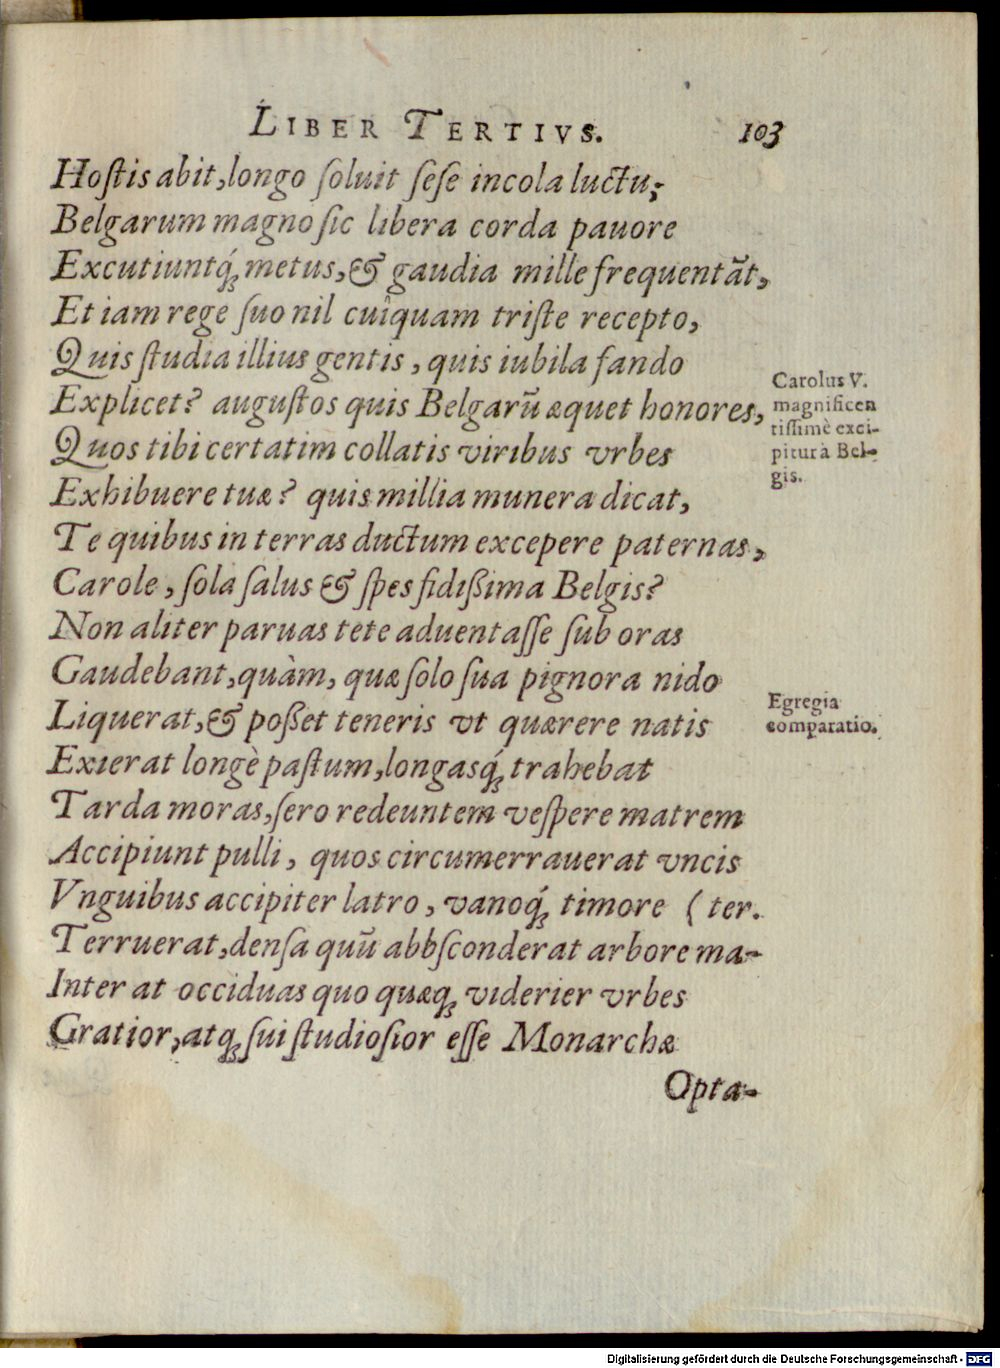 LIBER TERTIVS. 103
Hoſtis abit, longo ſoluit ſeſe incola luctu;
Belgarum magno ſic libera corda pauore
Excutiuntq́; metus, & gaudia mille frequentāt,
Et iam rege ſuo nil cuîquam triſte recepto,
Quis ſtudia illius gentis, quis iubila fando
Explicet? auguſtos quis Belgarū æquet honores,
Quos tibi certatim collatis viribus vrbes
Exhibuere tuæ? quis millia munera dicat,
Te quibus in terras ductum excepere paternas,
Carole, ſola ſalus & ſpes fidißima Belgis?
Non aliter paruas tete aduentaſſe ſub oras
Gaudebant, quàm, quæ ſolo ſua pignora nido
Liquerat, & poßet teneris vt quærere natis
Exierat longè paſtum, longasq́; trahebat
Tarda moras, ſero redeuntem veſpere matrem
Accipiunt pulli, quos circumerrauerat vncis
Vnguibus accipiter latro, vanoq́; timore (ter.
Terruerat, denſa quū abbſconderat arbore ma-
Inter at occiduas quo quæq; viderier vrbes
Gratior, atq; ſui ſtudioſior eſſe Monarchæ
Opta-
Carolus V.
magnificen
tiſſimè exci-
pitur à Bel-
gis.
Egregia
comparatio.
Digitalisierung gefördert durch die Deutsche Forschungsgemeinschaft - DFG